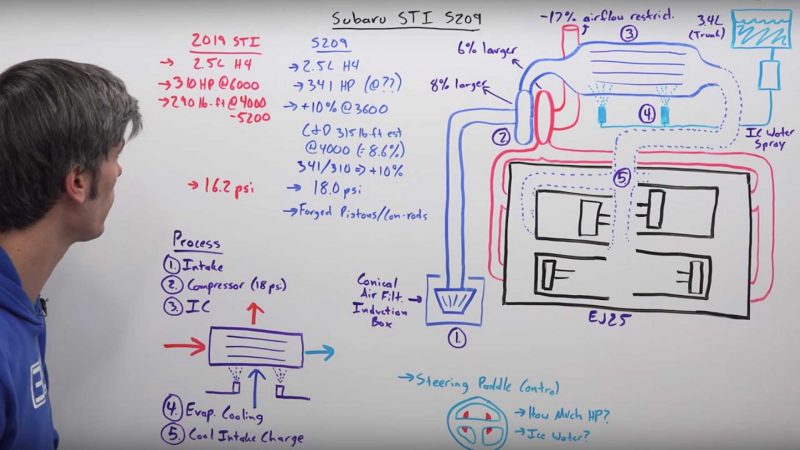 Subaru STI S209
2019 STI
→ 2.5L H4
→ 310 HP @ 6000
→ 290 lb.ft @ 4000
-5200
→ 16.2 psi
S209
→ 2.5L H4
→ 341 HP (@??)
→ +10% @ 3600
C+D 315 lb.ft est
@ 4000 (= 8.6%)
341/310 ⇒ +10%
→ 18.0 psi
→ Forged Pistons/Con-rods
-17% airflow restrict.
6% larger
8% larger
3
3.4L
(Trunk)
4
2
IC Water
Spray
5
EJ25
Conical
Air Filt.
Induction
Box
1.
Process
1. Intake
2. Compressor (18 psi)
3. IC
4. Evap. Cooling
5. Cool Intake Charge
→ Steering Paddle Control
→ How Much HP?
→ Ice Water?